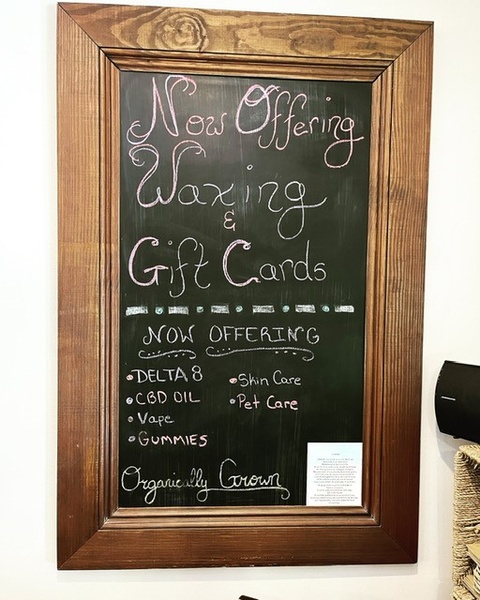 Now Offering
Waxing
&
Gift Cards
NOW OFFERING
DELTA 8
CBD OIL
Vape
GUMMIES
Skin Care
Pet Care
Organically Grown